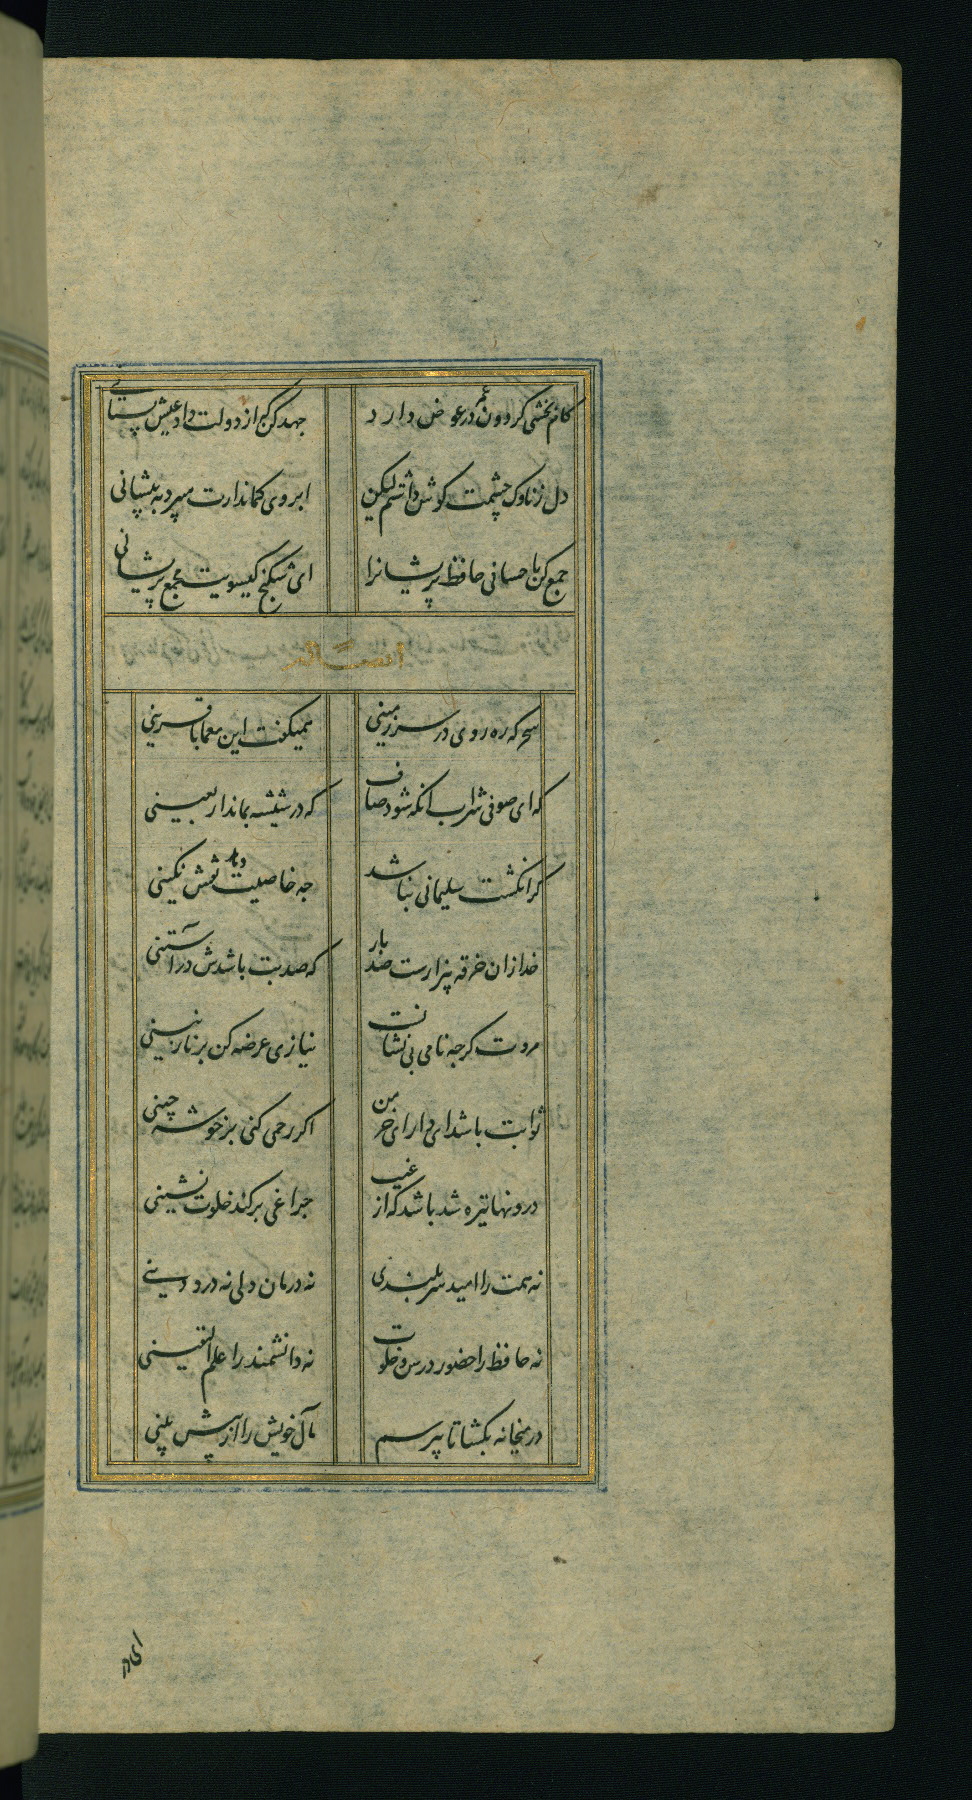 کام بخشی کردون عمر در عوض دارد
جهد کن کز از دولت داد عیش بستانی
دل ز ناوک چشمت کوش داشتم لیکن
ابروی کماندارت میبرد به پیشانی
جمع کن باحسانی حافظ پریشانرا
ای شکنج کیسویت مجمع پریشانی
سحرکه ره روی در سرزمینی
همیکفت این معما با قرینی
که ای صوفی شراب انکه شود صاف
که در شیشه بماند اربعینی
کر انکشت سلیمانی نباشد
چه خاصیت دهد نقش نکینی
خدا زان خرقه بیزارست صد بار
که صد بت باشدش در آستینی
مروت کرچه نامی بی نشانست
نیازی عرضه کن بر نازنینی
ثوابت باشد ای دارای خرمن
اکر رحمی کنی بر خوشه چینی
درونها تیره شد باشد که از غیب
چراغی برکند خلوت نشینی
نه همت را امید سربلندی
نه درمان دلی نه درد دینی
نه حافظ را حضور درس و خلوت
نه دانشمند را علم الیقینی
در میخانه بکشا تا بپرسم
مآل خویش را از پیش بینی